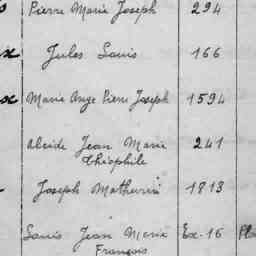 Pierre Marie Joseph 294
x Jules Louis 166
x Marie Ange Pierre Joseph 1594
Alcide Jean Marie 241
Théophile
Joseph Mathurin 1813
Louis Jean Marie Ex-16
François